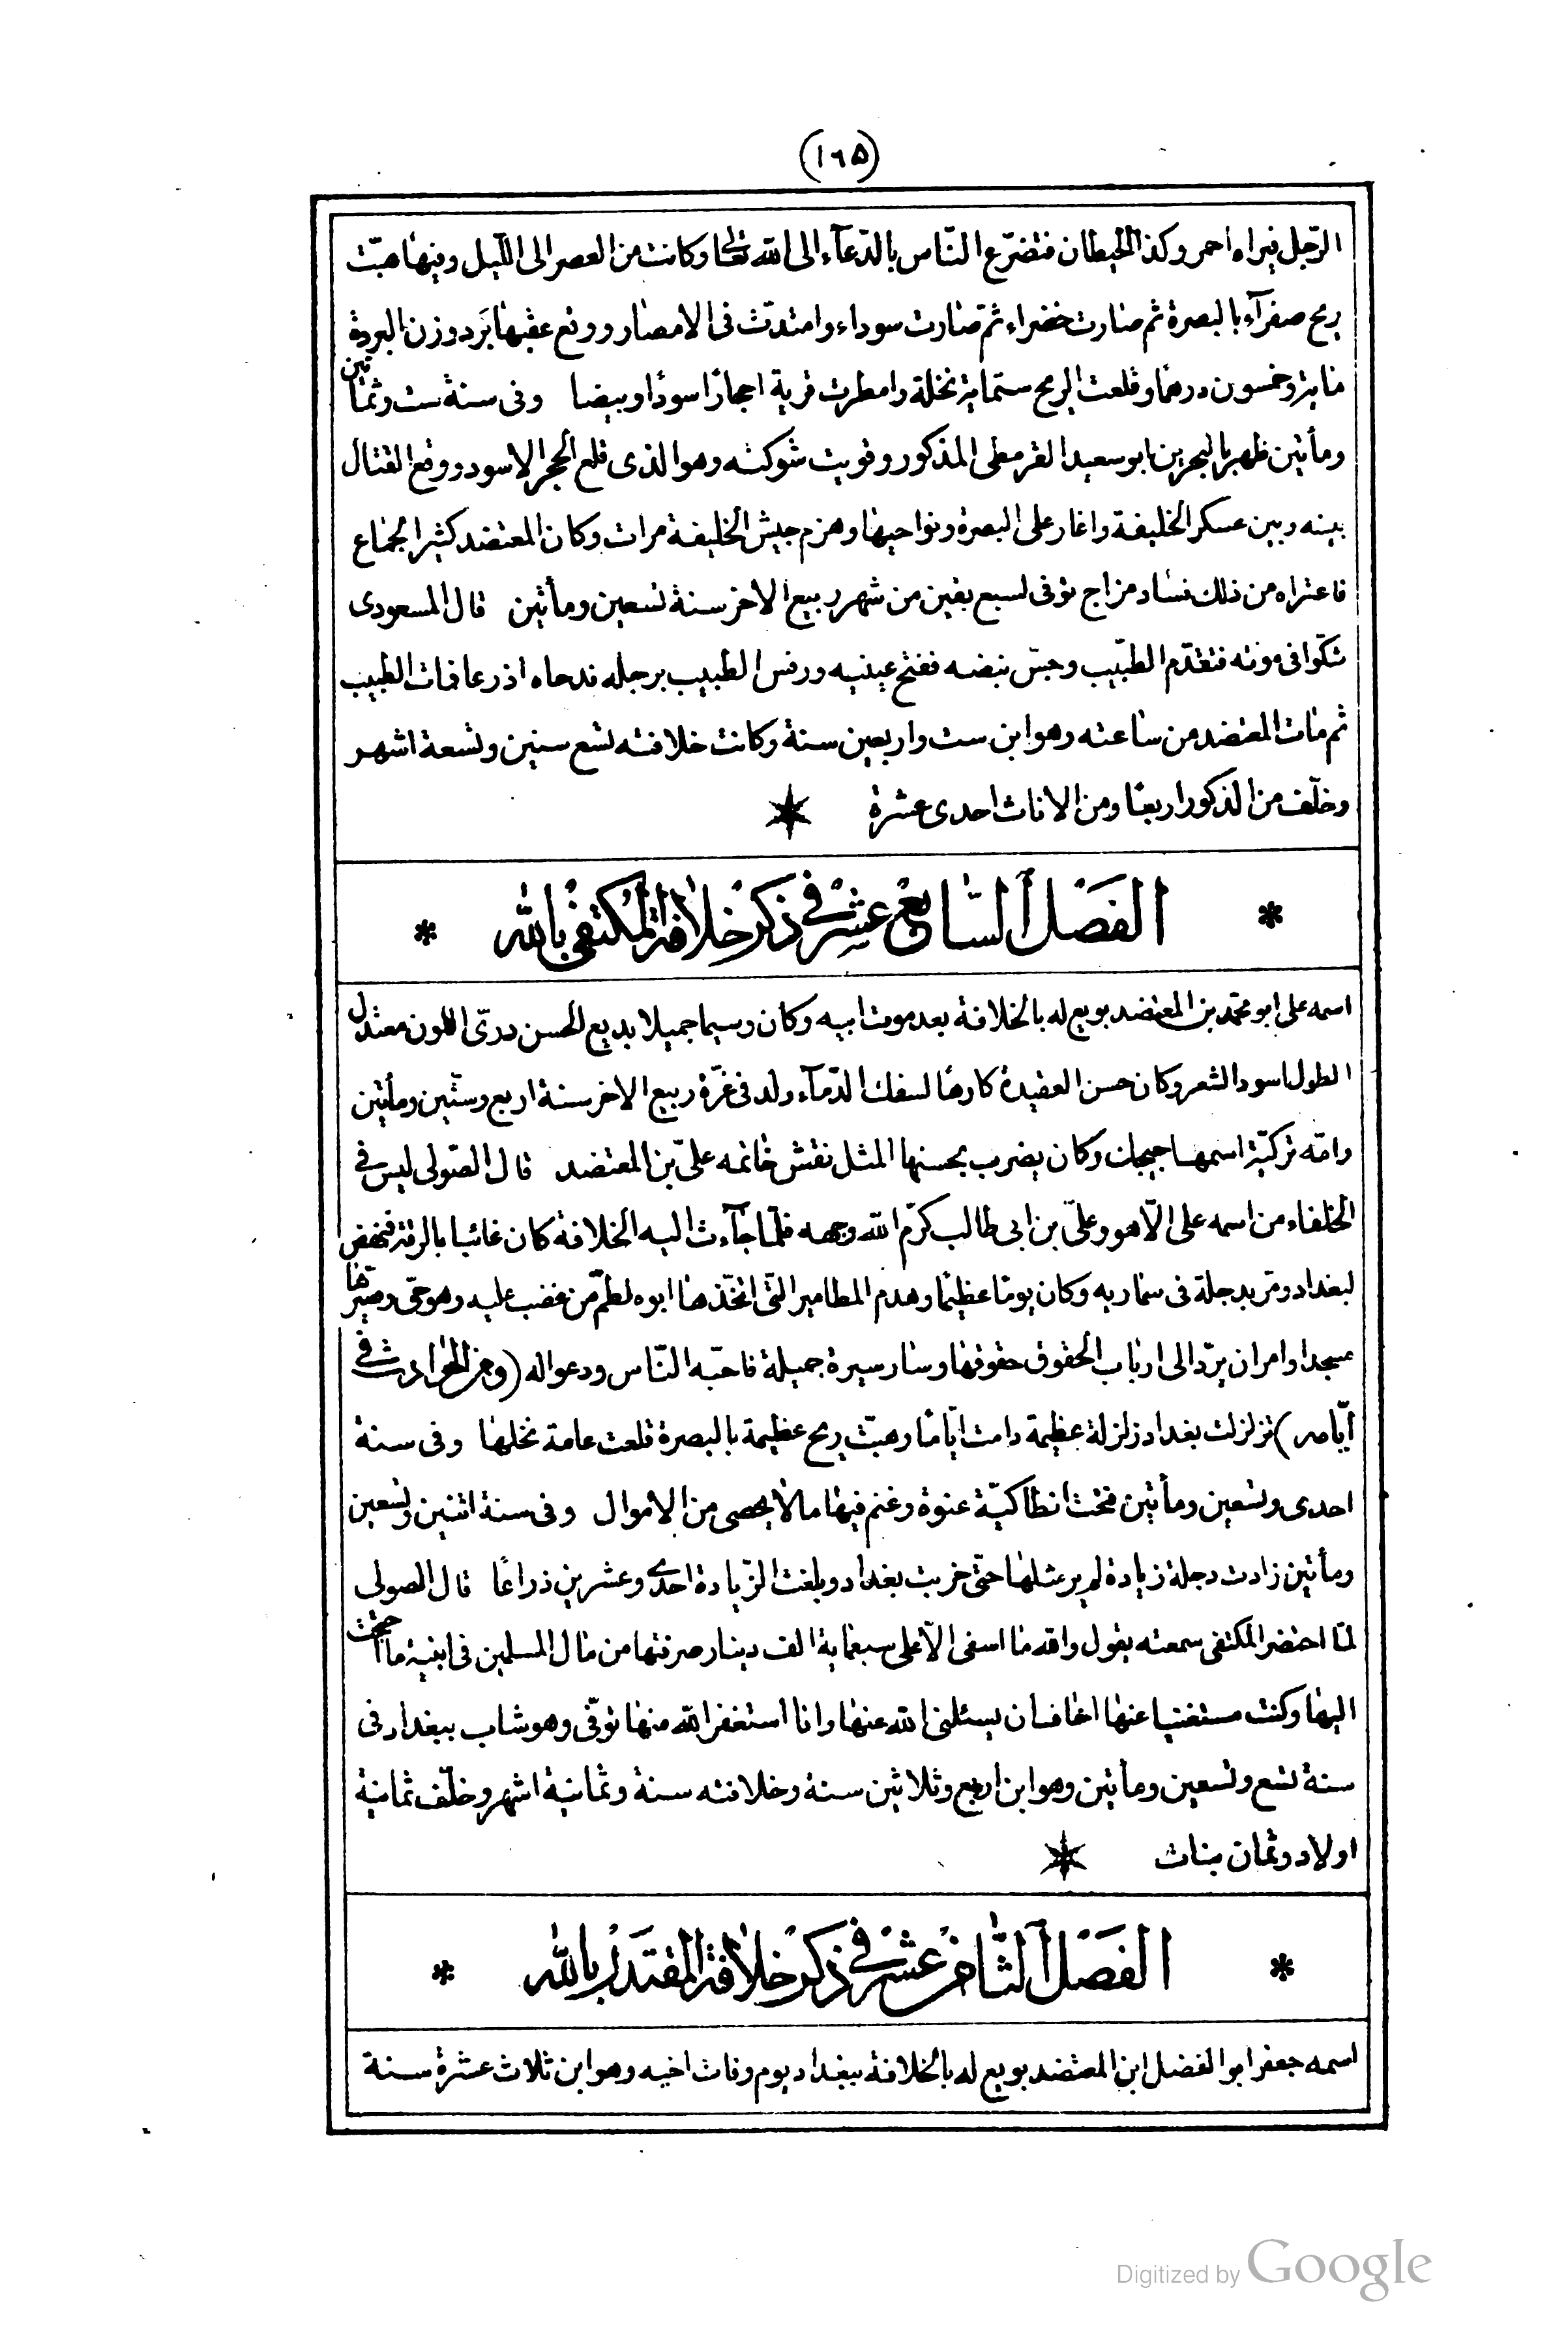 (١٦٥)
الرّجل فيراه احمر وكذا الحيطان فتضرّع النّاس بالدّعآء الى الله تعالى وكانت من العصر الى اللّيل وفيها هبّت
ريح صفرآء بالبصرة ثم صارت خضراء ثمّ صارت سوداء وامتدّت فى الامصار ووقع عقبها بَرَد وزن البردة
مايۀ وخمسون درهما وقلعت الريح ستمايۀ نخلة وامطرت قرية احجارًا سودًا وبيضا وفى سنة ست وثمانين
ومأتين ظهر بالبحرين ابو سعيد القرمطى المذكور وقويت شوكته وهو الذى قلع الحجر الاسود ووقع القتال
بينه وبين عسكر الخليفة واغار على البصرة ونواحيها وهزم جيش الخليفة مرات وكان المعتضد كثير الجماع
فاعتراه من ذلك فساد مزاج توفى لسبع بقين من شهر ربيع الاخر سنة تسعين ومأتين قال المسعودى
شكّوا فى موته فتقدّم الطّبيب وجسّ نبضه ففتح عينيه ورفس الطبيب برجله فدحاه اذرعا فمات الطبيب
ثم مات المعتضد من ساعته وهو ابن ست واربعين سنة وكانت خلافته تسع سنين وتسعة اشهر
وخلّف من الذكور اربعًا ومن الاناث احدى عشرة
* الفَصْل السّابع عشر فى ذكر خلافة المكتفى بالله *
اسمه على ابو محمّد بن المعتضد بويع له بالخلافة بعد موت ابيه وكان وسيما جميلا بديع الحسن درىّ اللون معتدل
الطول اسود الشعر وكان حسن العقيدة كارها لسفك الدّمآء ولد فى غرّة ربيع الاخر سنة اربع وستّين ومأتين
وامّه تركيّة اسمها جيجان وكان يضرب بحسنها المثل نقش خاتمه علىّ بن المعتضد قال الصّولى ليس فى
الخلفاء من اسمه على الّا هو وعلىّ بن ابى طالب كرّم الله وجهه فلمّا جآءت اليه الخلافة كان غائبا بالرقة فنهض
لبغداد ومرّ بدجلة فى سماريه وكان يومًا عظيمًا وهدم المطامير الّتى اتخّذها ابوه لطمّ من غضب عليه وهو حىّ وصيّرها
مسجدا وامر ان يردّ الى ارباب الحقوق حقوقها وسار سيرة جميلة فاحبّه النّاس ودعوا له (ومن الحوادث فى
أيّامه) تزلزلت بغداد زلزلة عظيمة دامت ايّامًا وهبّت ريح عظيمة بالبصرة قلعت عامة نخلها وفى سنة
احدى وتسعين ومأتين فتحت انطاكيّة عنوة وغنم فيها مالا يحصى من الاموال وفى سنة اثنين وتسعين
ومأتين زادت دجلة زيادة لم ير مثلها حتّى خربت بغداد وبلغت الزّيادة احدى وعشرين ذراعًا قال الصولى
لمّا احتضر المكتفى سمعته يقول والله ما اسفى الّا على سبعماية الف دينار صرفتها من مال المسلمين فى ابنية ما احتجت
اليها وكنت مستغنيا عنها اخاف ان يسئلنى الله عنها وانا استغفر الله منها توفّى وهو شاب ببغداد فى
سنة تسع وتسعين ومأتين وهو ابن اربع وثلاثين سنة وخلافته سنة وثمانية اشهر وخلّف ثمانية
اولاد وثمان بنات
* الفَصْل الثّامن عشر فى ذكر خلافة المقتدر بالله *
اسمه جعفر ابو الفضل ابن المعتضد بويع له بالخلافة ببغداد يوم وفات اخيه وهو ابن ثلاث عشرة سنة
Digitized by Google